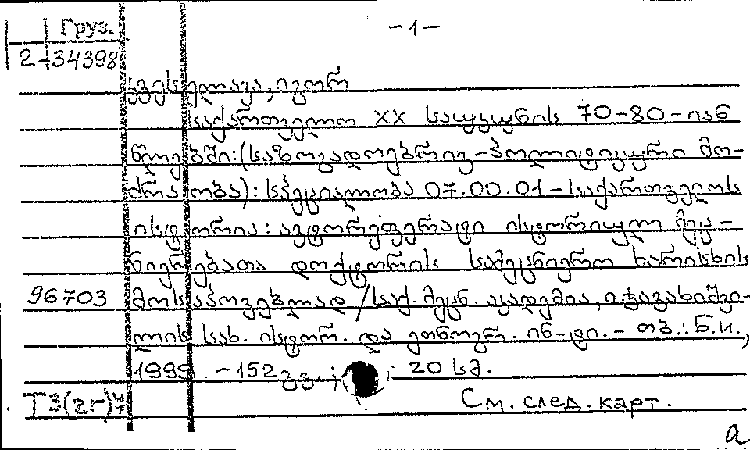 Груз. -1-
2-34398
კვესელავა, იგორ
საქართველო XX საუკუნის 70-80-იან
წლებში: (საზოგადოებრივ-პოლიტიკური მო-
ძრაობა): სპეციალობა 07.00.01-საქართველოს
ისტორია: ავტორეფერატი ისტორიულ მეცა-
ნიერებათა დოქტორის სამეცნიერო ხარისხის
96703 მოსაპოვებლად /საქ. მეცნ. აკადემია, ი. ჯავახიშვი-
ლის სახ. ისტორ. და ეთნოგრ. ინ-ტი.- თბ.: Б.И.,
-152 გვ.; 20 სმ.
Т3(2г)7 См. след. карт.
а